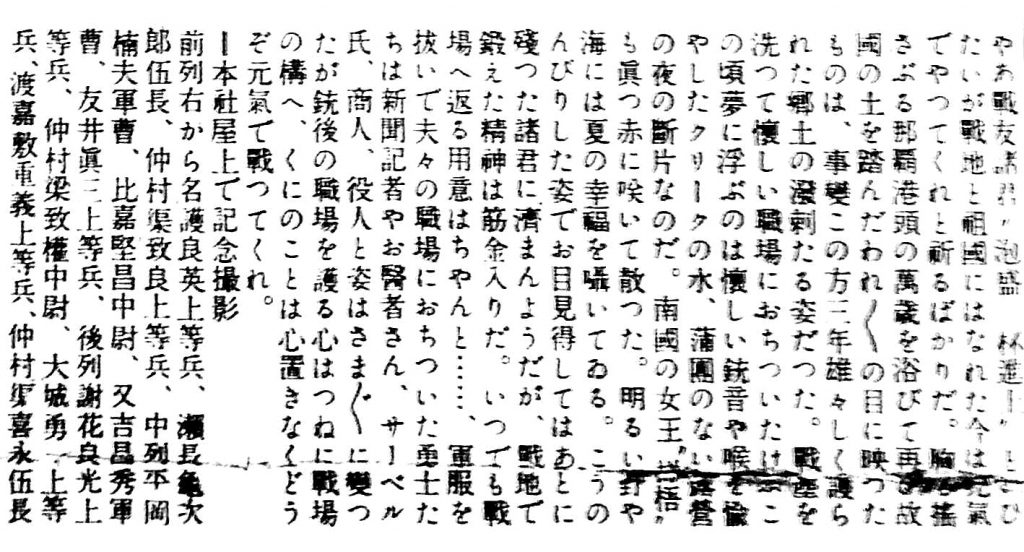 やあ戰友諸君〃泡盛 杯進上〃とこひ
たいが戰地と祖國にはなれた今は元氣
でやつてくれと祈るばかりだ。胸 搖
さぶる那覇港頭の萬歳を浴びて再 故
國の土を踏んだわれ〱の目に映つた
ものは、事變この方三年雄々しく護ら
れた郷土の潑剌たる姿だつた。戰塵を
洗つて懷しい職場におちついたけふこ
の頃夢に浮ぶのは懷しい銃音や喉を愉
やしたクリークの水、蒲團のない露營
の夜の斷片なのだ。南國の女王〃 梧〃
も眞つ赤に咲いて散つた。明るい野や
海には夏の幸福を囁いてゐる。こうの
んびりした姿でお目見得してはあとに
殘つた諸君に濟まんようだが、戰地で
鍛えた精神は筋金入りだ。いつでも戰
場へ返る用意はちやんと……、軍服を
拔いで夫々の職場におちついた勇士た
ちは新聞記者やお醫者さん、サーベル
氏、商人、役人と姿はさま〲に變つ
たが銃後の職場を護る心はつねに戰場
の構へ、くにのことは心置きなくどう
ぞ元氣で戰つてくれ。
ー本社屋上で記念撮影
前列右から名護良英上等兵、瀬長龜次
郎伍長、仲村渠致良上等兵、中列平岡
楠夫軍曹、比嘉堅昌中尉、又吉昌秀軍
曹、友井眞三上等兵、後列謝花良光上
等兵、仲村梁致權中尉、大城勇一上等
兵、渡嘉敷重義上等兵、仲村渠喜永伍長